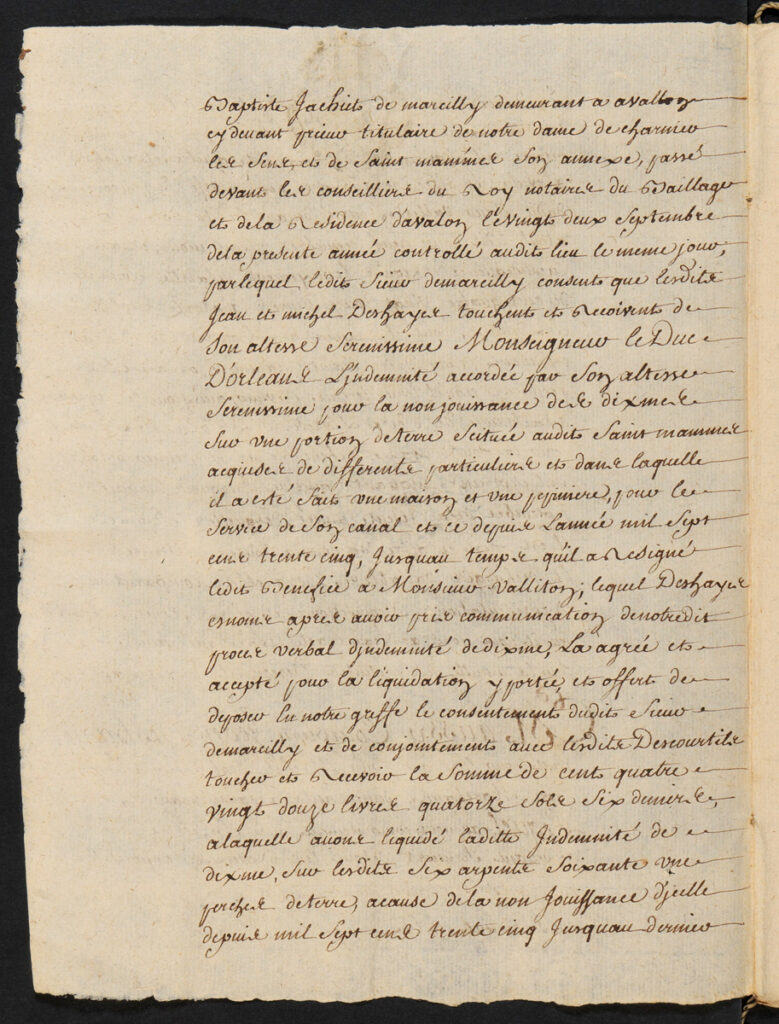 Baptiste Jachiet de marcilly demeurant a avallon
cy devant prieur titulaire de notre dame de charmeo
les sens, et de Saint mammes Son annexe, passé
devant les conseilliers du Roy notaires du Baillage
et dela Residence d'avalon le vingt deux Septembre
dela presente année controllé audit lieu le meme jour,
par lequel ledit Sieur demarcilly consent que lesdits
Jean et michel Deshayes touchent et Recoivent de
Son altesse Serenissime Monseigneur le Duc
D'orleans L'jndemnité accordée par Son altesse
Serenissime pour la non jouissance des dixmes
Sur vne portion de terre Scituée audit Saint mammes
acquises de differents particuliers et dans laquelle
il a esté fait vne maison et vne pepiniere, pour le
Service de Son canal et ce depuis L'année mil Sept
cens trente cinq, Jusquau temps qu'il a Resigné
ledit Benefice a Monsieur Valliton; lequel Deshayes
esnoms apres avoir pris communication de notredit
proces verbal d'jndemnité de dixme, La agrée et
accepté pour la liquidation y portée, et offert de
deposer En notre greffe le consentement dudit Sieur
demarcilly et de conjointement avec lesdits Descourtils
toucher et Recevoir la Somme de cent quatre
vingt douze livres quatorze Sols Six deniers,
a laquelle avons liquidé laditte Jndemnité de
dixme, Sur lesdits Six arpents Soixante vne
perches de terre, acause de la non Jouissance d'jcelle
depuis mil Sept cens trente cinq Jusquau dernier